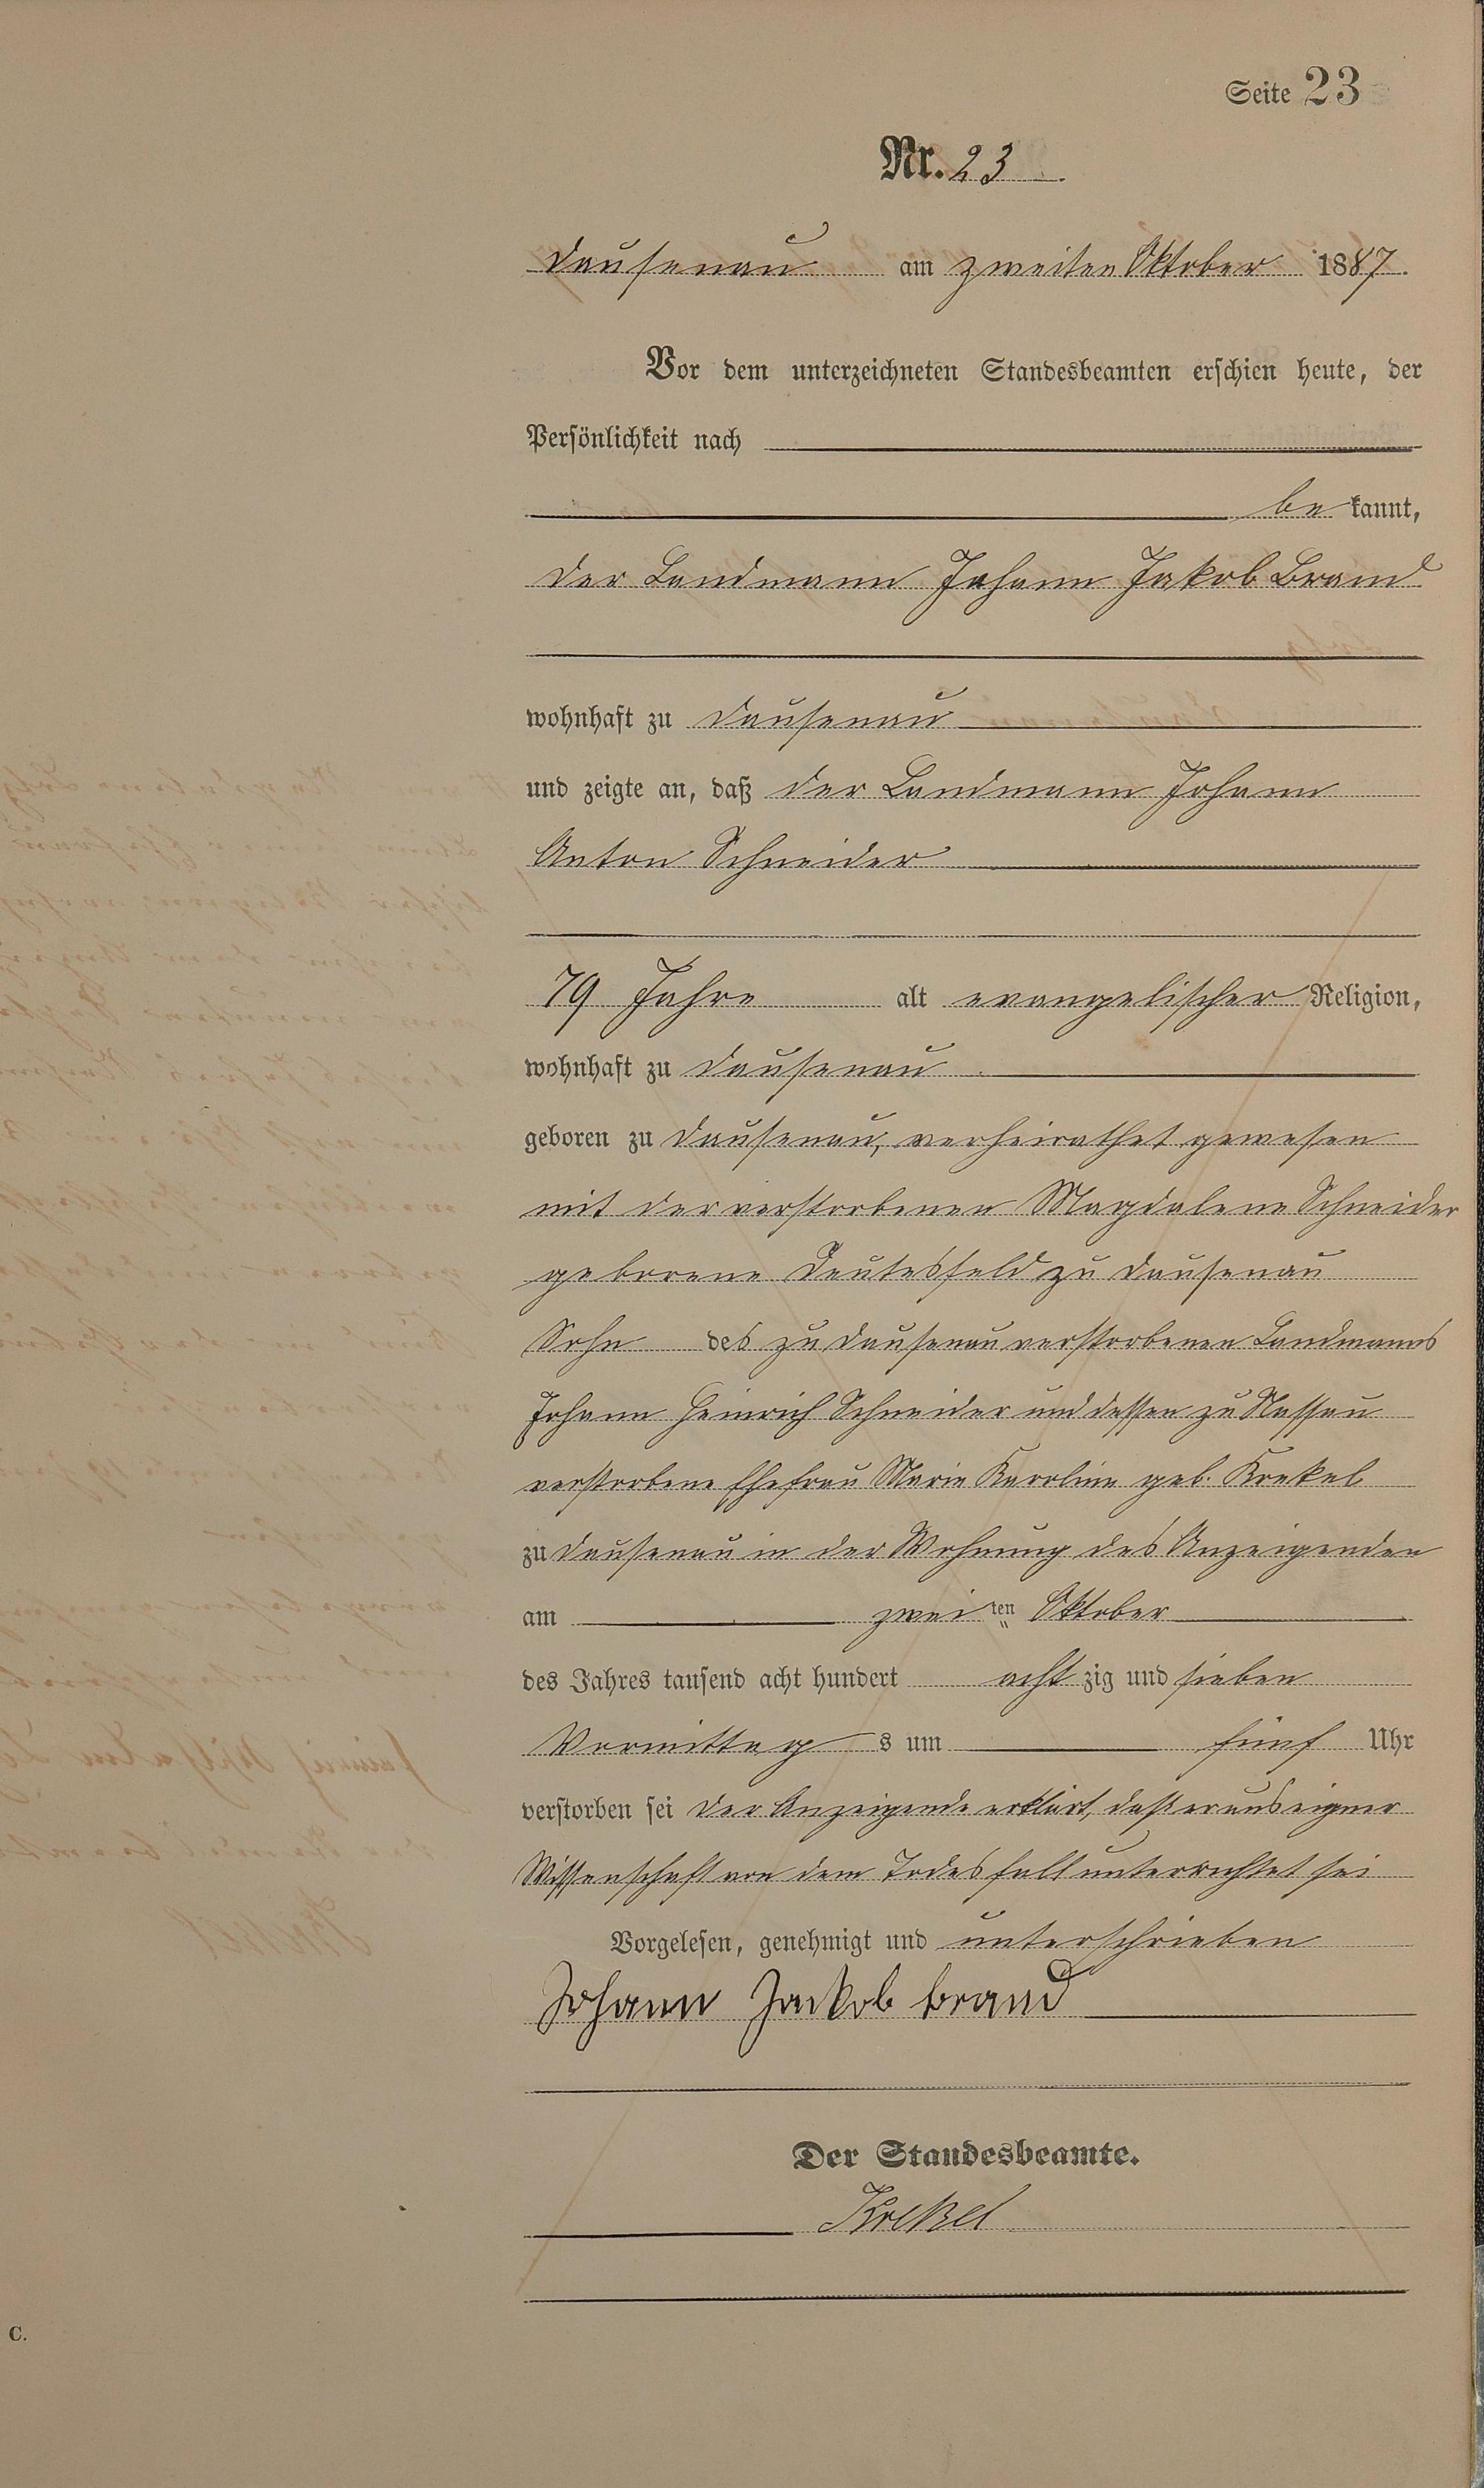 Seite 23
Nr. 23
Dausenau am zweiten Oktober 1887.
Vor dem unterzeichneten Standesbeamten erschien heute, der
Persönlichkeit nach
be kannt,
der Landmann Johann Jakob Brand
wohnhaft zu Dausenau
und zeigte an, daß der Landmann Johann
Anton Schneider
79 Jahre alt evangelischer Religion,
wohnhaft zu Dausenau
geboren zu Dausenau, verheirathet gewesen
mit der verstorbenen Magdalene Schneider
geborene Deutesfeld zu Dausenau
Sohn des zu Dausenau verstorbenen Landmanns
Johann Heinrich Schneider und dessen zu Nassau
verstorbene Ehefrau Marie Karoline geb. Krekel
zu Dausenau in der Wohnung des Anzeigenden
am zwei ten Oktober
des Jahres tausend acht hundert acht zig und sieben
Vormittag s um fünf Uhr
verstorben sei Der Anzeigende erklärt, daß er aus eigner
Wissenschaft von dem Todesfall unterrichtet sei
Vorgelesen, genehmigt und unterschrieben
Johann Jackob brand
Der Standesbeamte.
Krekel
C.